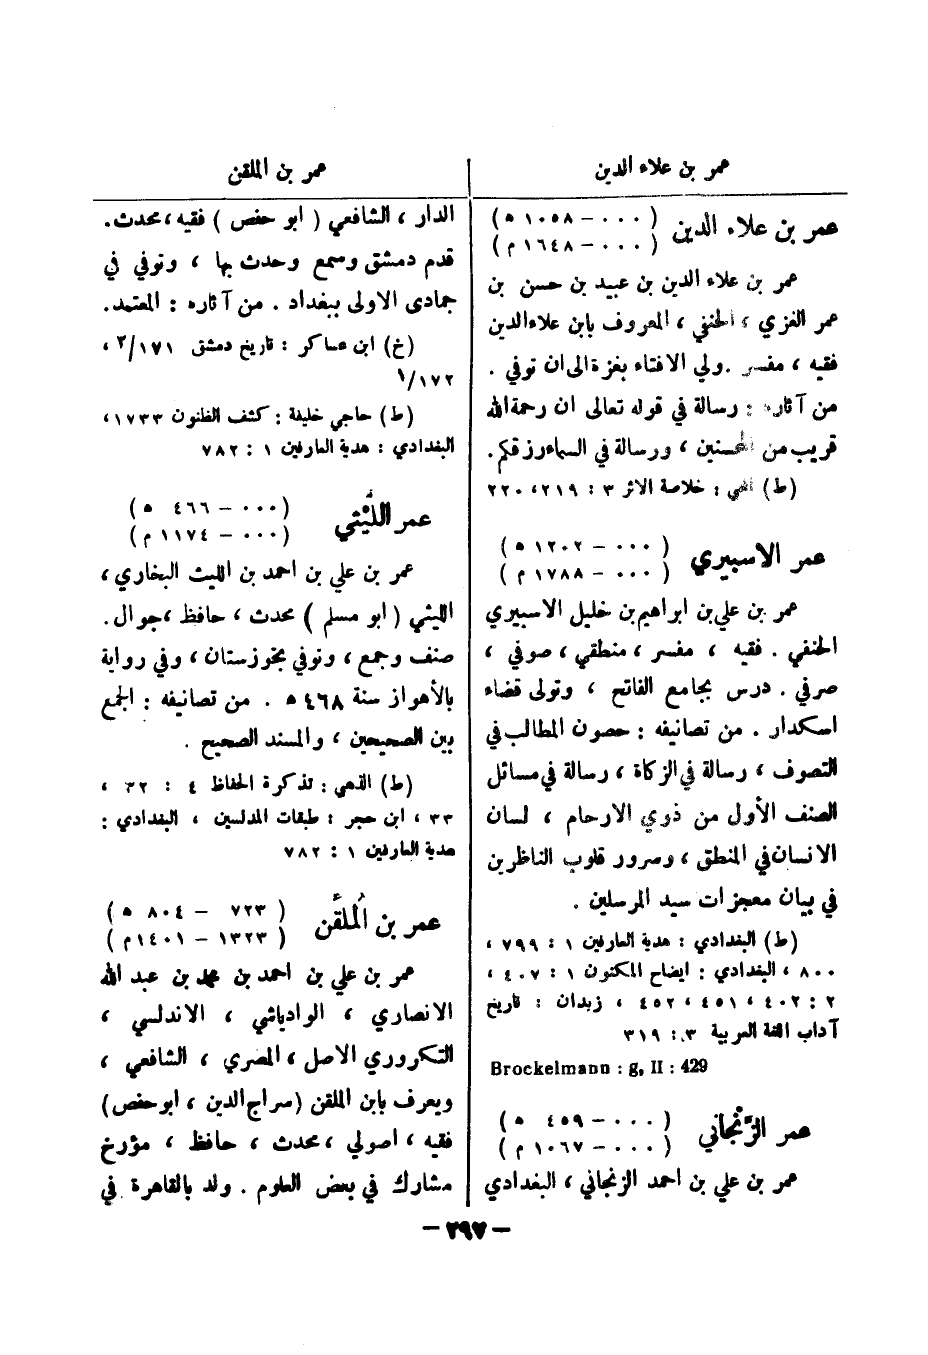 عمر بن علاء الدين
عمر بن علاء الدين ( ٠٠٠ – ١٠٥٨ ه )
( ٠٠٠ – ١٦٤٨ م )
عمر بن علاء الدين بن عبيد بن حسن بن
عمر الغزي ، الحنفي ، المعروف بابن علاء الدين
فقيه ، مفسر . ولي الافتاء بغزة الى ان توفي .
من آثاره : رسالة في قوله تعالى ان رحمة الله
قريب من المحسنين ، ورسالة في السماء رزقكم .
(ط) المحبي : خلاصة الاثر ٣ : ٢١٩ ، ٢٢٠
عمر الاسبيري ( ٠٠٠ – ١٢٠٢ ه )
( ٠٠٠ – ١٧٨٨ م )
عمر بن علي بن ابراهيم بن خليل الاسبيري
الحنفي . فقيه ، مفسر ، منطقي ، صوفي ،
صرفي . درس بجامع الفاتح ، وتولى قضاء
اسكدار . من تصانيفه : حصون المطالب في
التصوف ، رسالة في الزكاة ، رسالة في مسائل
الصنف الأول من ذوي الارحام ، لسان
الانسان في المنطق ، وسرور قلوب الناظرين
في بيان معجزات سيد المرسلين .
(ط) البغدادي : هدية العارفين ١ : ٧٩٩ ،
٨٠٠ ، البغدادي : ايضاح المكنون ١ : ٤٠٧ ،
٢ : ٤٠٢ ، ٤٥١ ، ٤٥٢ ، زيدان : تاريخ
آداب اللغة العربية ٣ : ٣١٩
Brockelmann : g, II : 429
عمر الزَّنْجاني ( ٠٠٠ – ٤٥٩ ه )
( ٠٠٠ – ١٠٦٧ م )
عمر بن علي بن احمد الزنجاني ، البغدادي
عمر بن الملقن
الدار ، الشافعي ( ابو حفص ) فقيه ، محدث .
قدم دمشق وسمع وحدث بها ، وتوفي في
جمادى الاولى ببغداد . من آثاره : المعتمد .
(خ) ابن عساكر : تاريخ دمشق ٢/١٧١ ،
١/١٧٢
(ط) حاجي خليفة : كشف الظنون ١٧٣٣ ،
البغدادي : هدية العارفين ١ : ٧٨٢
عمر اللَّيْثي ( ٠٠٠ – ٤٦٦ ه )
( ٠٠٠ – ١١٧٤ م )
عمر بن علي بن احمد بن الليث البخاري ،
الليثي ( ابو مسلم ) محدث ، حافظ ، جوال .
صنف وجمع ، وتوفي بخوزستان ، وفي رواية
بالأهواز سنة ٤٦٨ ه . من تصانيفه : الجمع
بين الصحيحين ، والمسند الصحيح .
(ط) الذهبي : تذكرة الحفاظ ٤ : ٣٢ ،
٣٣ ، ابن حجر : طبقات المدلسين ، البغدادي :
هدية العارفين ١ : ٧٨٢
عمر بن المُلَقِّن ( ٧٢٣ – ٨٠٤ ه )
( ١٣٢٣ – ١٤٠١ م )
عمر بن علي بن احمد بن محمد بن عبد الله
الانصاري ، الوادياشي ، الاندلسي ،
التكروري الاصل ، المصري ، الشافعي ،
ويعرف بابن الملقن (سراج الدين ، ابو حفص)
فقيه ، اصولي ، محدث ، حافظ ، مؤرخ
مشارك في بعض العلوم . ولد بالقاهرة في
– ٢٩٧ –